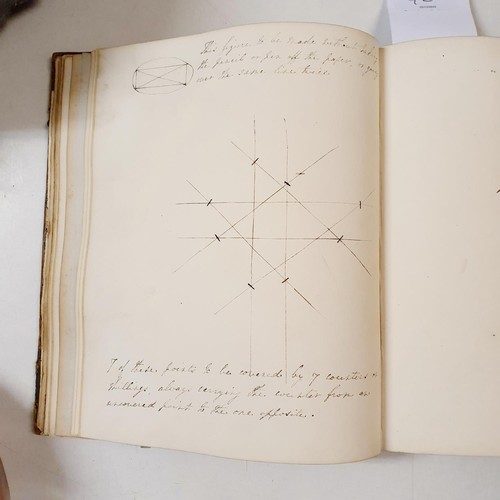 This figure to be made without taking
the pencil or pen off the paper, or going
over the same line twice.
7 of these points to be covered by 7 counters or
shillings, always carrying the counter from an
uncovered point to the one opposite.